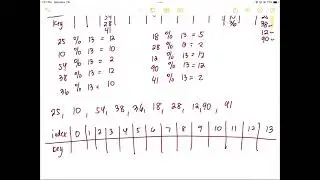 key 28 36 12
41 90
25 % 13 = 12 18 % 13 = 5
10 % 13 = 10 28 % 13 = 2
54 % 13 = 2 % 13 = 12
38 % 13 = 12 90 % 13 = 12
36 % 13 = 10 41 % 13 = 2
25, 10, 54, 38, 36, 18, 28, 12, 90, 41
index 0 1 2 3 4 5 6 7 8 9 10 11 12 13
key